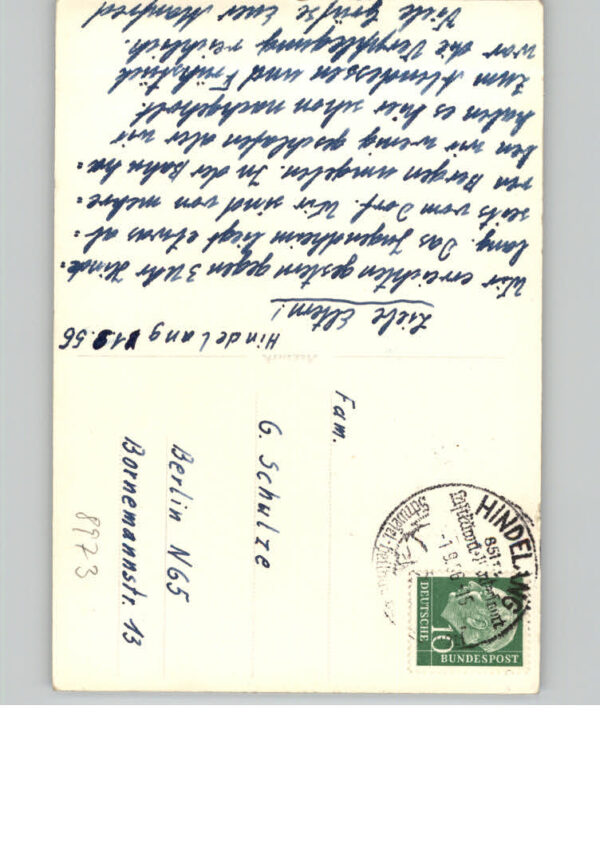 Hindelang 1.9.56
Liebe Eltern!
Wir erreichten gestern gegen 3 Uhr Hinde=
lang. Das Jugendheim liegt etwas ab=
seits vom Dorf. Wir sind von mehre=
ren Bergen umgeben. In der Bahn ha=
ben wir wenig geschlafen aber wir
haben es hier schon nachgeholt.
Zum Abendessen und Frühstück
war die Verpflegung reichlich.
Viele Grüße Euer Manfred
Fam.
G. Schulze
Berlin N65
Bornemannstr. 13
8973
HINDELANG
-1.9.56
10
DEUTSCHE
BUNDESPOST